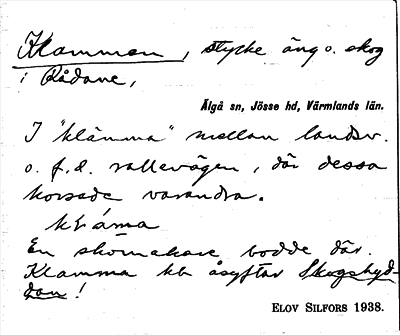 Klamman, stycke äng o. skog
i Rådane,
Älgå sn, Jösse hd, Värmlands län.
I "klämma" mellan landsv.
o. f.d. vallevägen, där dessa
korsade varandra.
En skomakare bodde där.
Klamma kb åsyftar Skogshyd-
dan!
ELOV SILFORS 1938.